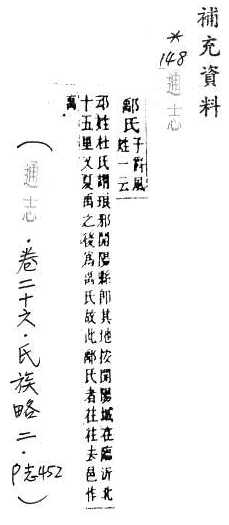 補充資料
*148通志
鄅氏子爵風姓一云
邧姓杜氏謂琅邪開陽縣即其地按開陽城在臨沂北
十五里又夏禹之後為禼氏故此鄅氏者往往去邑作
禹
(通志·卷二十六·氏族略二·P志452)